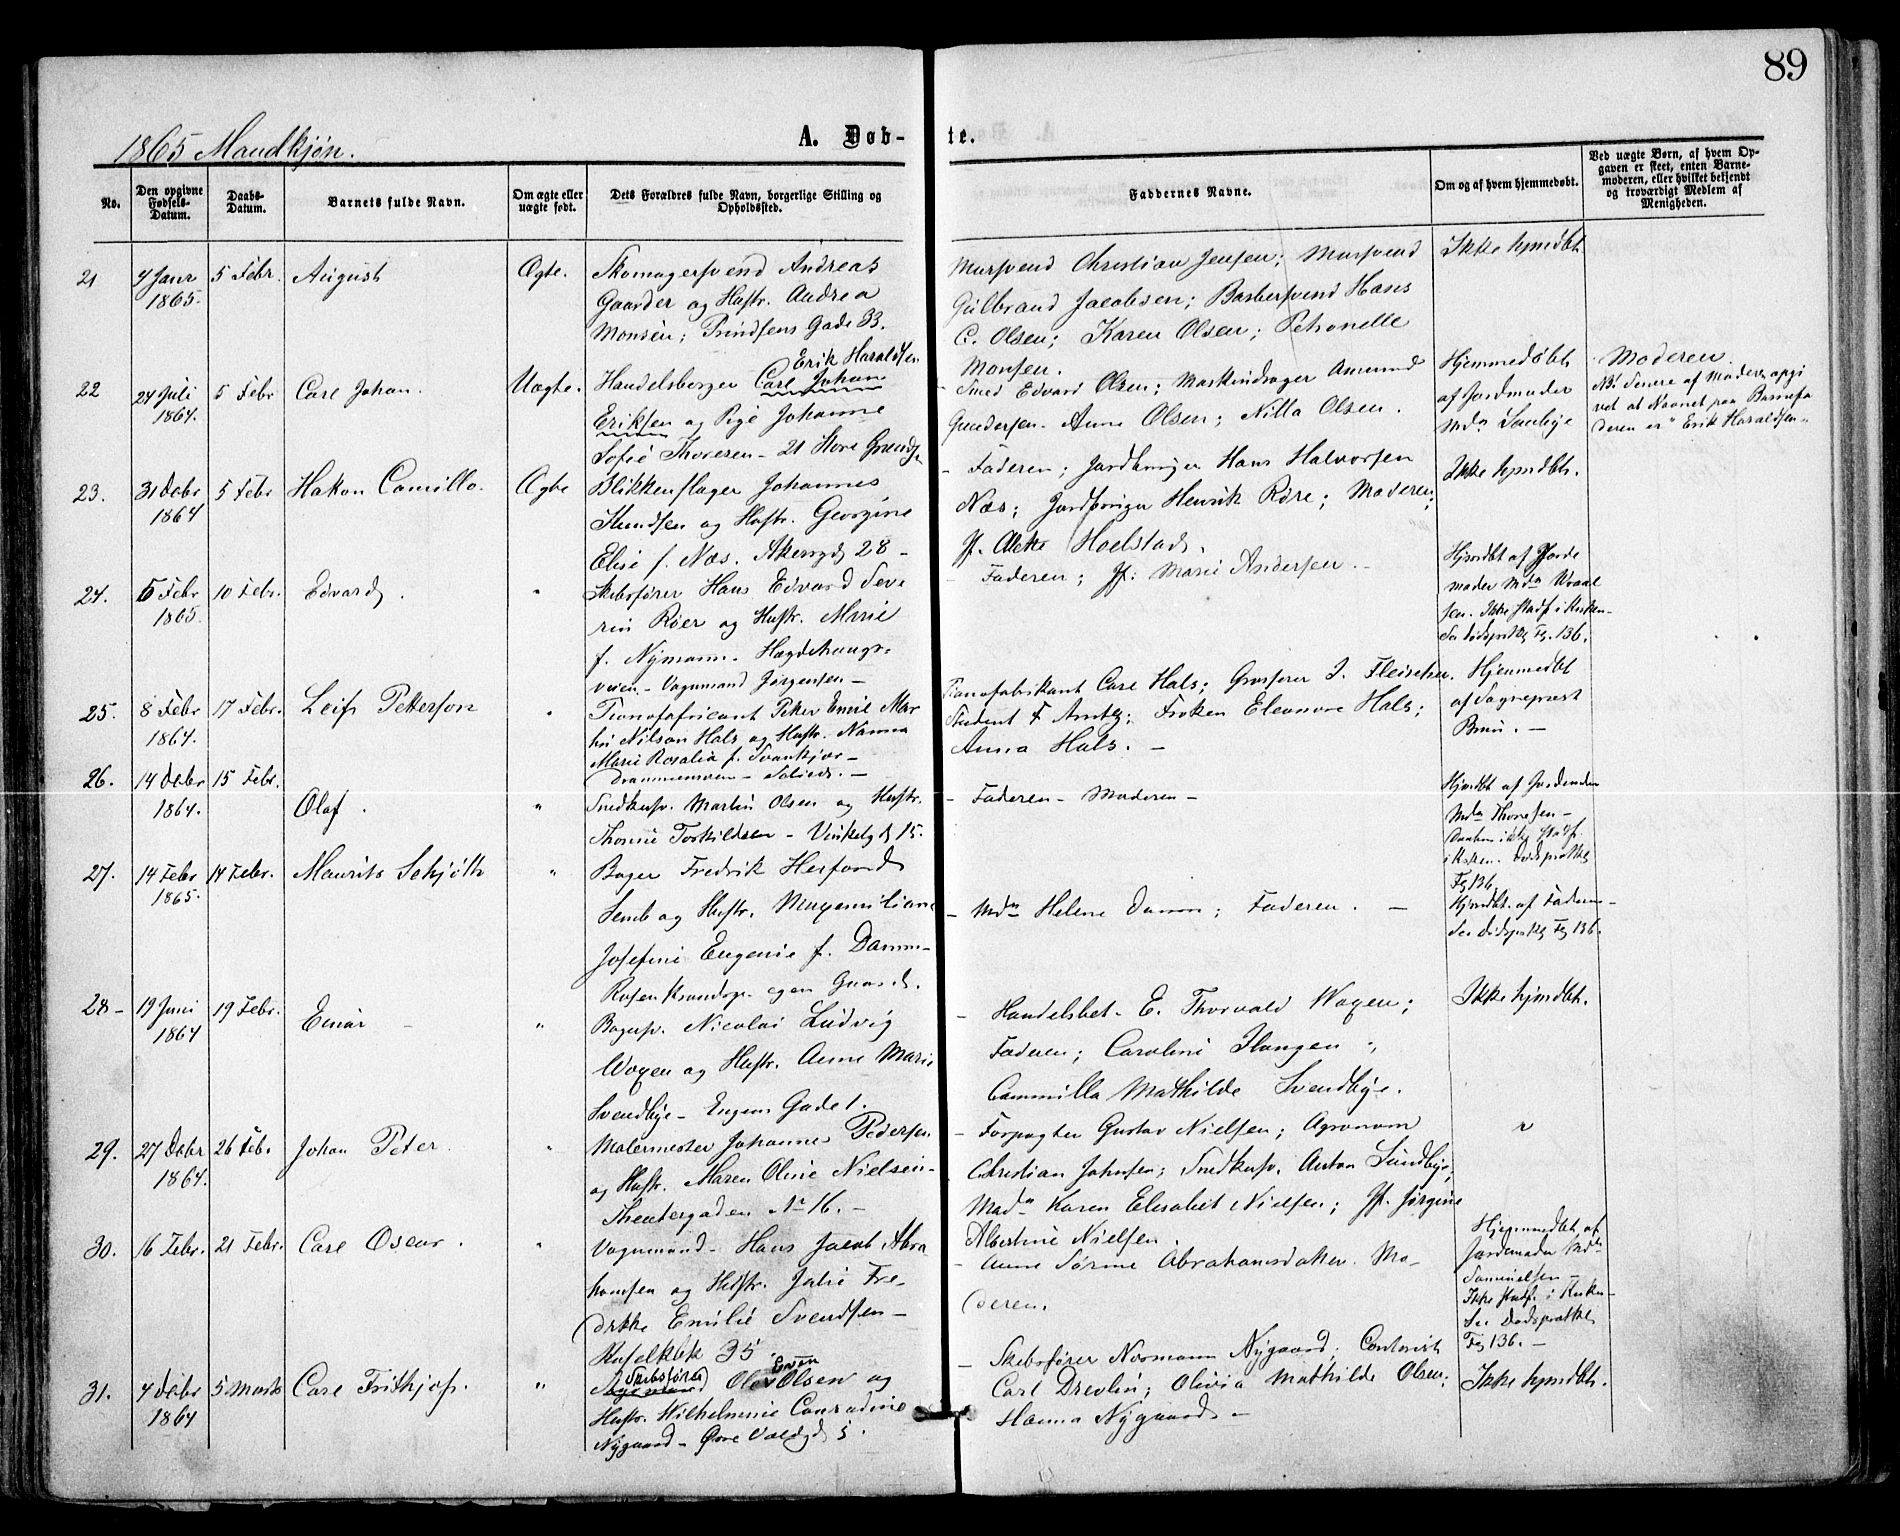 89
1865 Mandkjøn.
A. Døb- te.
No.
Den opgivne Fødsels-Datum.
Daabs-Datum.
Barnets fulde Navn.
Om ægte eller uægte født.
Dets Forældres fulde Navn, borgerlige Stilling og Opholdssted.
Faddernes Navne.
Om og af hvem hjemmedøbt.
Ved uægte Børn, af hvem Opgaven er skeet, enten Barnemoderen, eller hvilket bekjendt og troværdigt Medlem af Menigheden.
21 4 Janr 1865. 5 Febr. August Ægte.
Skomagersvend Andreas
Gaarder og Hustr. Andrea
Monsen; Prindsens Gade 33.
Mursvend Christian Jensen; Mursvend
Gulbrand Jacobsen; Barbersvend Hans
C. Olsen; Karen Olsen; Petronelle
Monsen.
Ikke hjmdbt
22 24 Juli 1864. 5 Febr Carl Johan. Uægte.
Erik Haraldsen
Handelsborger Carl Johan
Eriksen og Pige Johanne
Sofie Thoresen - 21 Store Grændse
- Smed Edvard Olsen; Maskindrager Amund
Gundersen. Anne Olsen; Nilla Olsen.
Hjemmedøbt
af Jordmoder
Mda
Moderen.
NB. Senere af Moderen opgi
vet at Navnet paa Barnefa
deren er "Erik Haraldsen"
23. 31 Decbr 1864 5 Febr Hakon Camillo. Ægte
Blikkenslager Johannes
Knudsen og Hustr. Georgine
Elise f. Næs. Akersgd 28 -
- Faderen; Jordbruger Hans Halvorsen
Næs; Jordbruger Henrik Røre; Moderen;
Jf. Hoelstad.
Ikke hjmdbt.
24. 6 Febr 1865. 10 Febr. Edvard. "
Skibsfører Hans Edvard Seve
rin Røer og Hustr. Marie
f. Nymann. Hægdehaugs-
veien - Vognmand Jørgensen -
- Faderen; Jf. Marie Andersen -
Hjmdbt af Jorde
moder Mda
sen. Ikke stadf i Kirken-
See dødsprotk Fg. 136.
25. 8 Febr 1864. 17 Febr. Leif Petterson "
Pianofabricant Peter Emil Mar
tin Nilson Hals og Hustr. Nanna
Marie Rosalia f. Svankjær -
Drammensveien - Solied. -
Pianofabrikant Carl Hals; Grosserer I. Fleischer.
Student F. Arntz; Frøken Eleonore Hals;
Anna Hals. -
Hjemmedbt
af Sogneprest
Bruun. -
26. 14 Decbr 1864. 15 Febr. Olaf. "
Snedkersv. Martin Olsen og Hustr.
Thonine Torkildsen - Vinkelgd 15.
- Faderen - Moderen -
Hjmdbt af Jordemoder
Mda Thoresen -
Daaben ikke stadf.
i Kirken. Dødsprotk
Fg 136.
27. 14 Febr 1865. 14 Febr. Maurits Schjøth "
Bager Fredrik Herford
Lemb og Hustr. Maxemiliane
Josefine Eugenie f. Damm -
Rosenkrandsg. egen Gaard.
- Mdm Helene Damm; Faderen. -
Hjmdbt. af Faderen -
See Dødsprotk Fg 136.
28 - 19 Juni 1864 19 Febr. Einar - "
Bagersv. Nicolai Ludvig
Woxen og Hustr. Anne Marie
Svendbye - Engens Gade 1.
- Handelsbet. E. Thorvald Woxen;
Faderen; Caroline Haugen;
Cammilla Mathilde Svendbye.
Ikke hjmdbt.
29. 27 Decbr 1864. 26 Febr. Johan Peter. "
Malermester Johannes Pedersen
og Hustr. Maren Oline Nielsen -
Theatergaden No 16. -
- Forpagter Gustav Nielsen; Agronom
Christian Johnsen; Snedkersv. Anton Lundbye;
Madm Karen Elisabet Nielsen; Jf. Jørgine
Albertine Nielsen.
"
30. 16 Febr. 21 Febr. Carl Oscar. "
Vognmand - Hans Jacob Abra
hamsen og Hustr. Julie Fre-
drikke Emilie Svendsen -
Ruseløkbk 35
- Anne Sørine Abrahamsdatter. Mo-
deren.
Hjemmedbt af
Jordemoder Mdm
Samuelsen -
Ikke stadf. i Kirken -
See Dødsprotkk
Fg 136. -
31. 4 Decbr 1864 5 Marts Carl Frithjof. "
Skibsfører Even
Olsen og
Hustr. Wilhelmine Conradine
Nygaard - Øvre Voldgd 5.
- Skibsfører Normann Nygaard. Contorist
Carl Drevlin; Olivia Mathilde Olsen;
Hanna Nygaard -
Ikke hjmdbt.